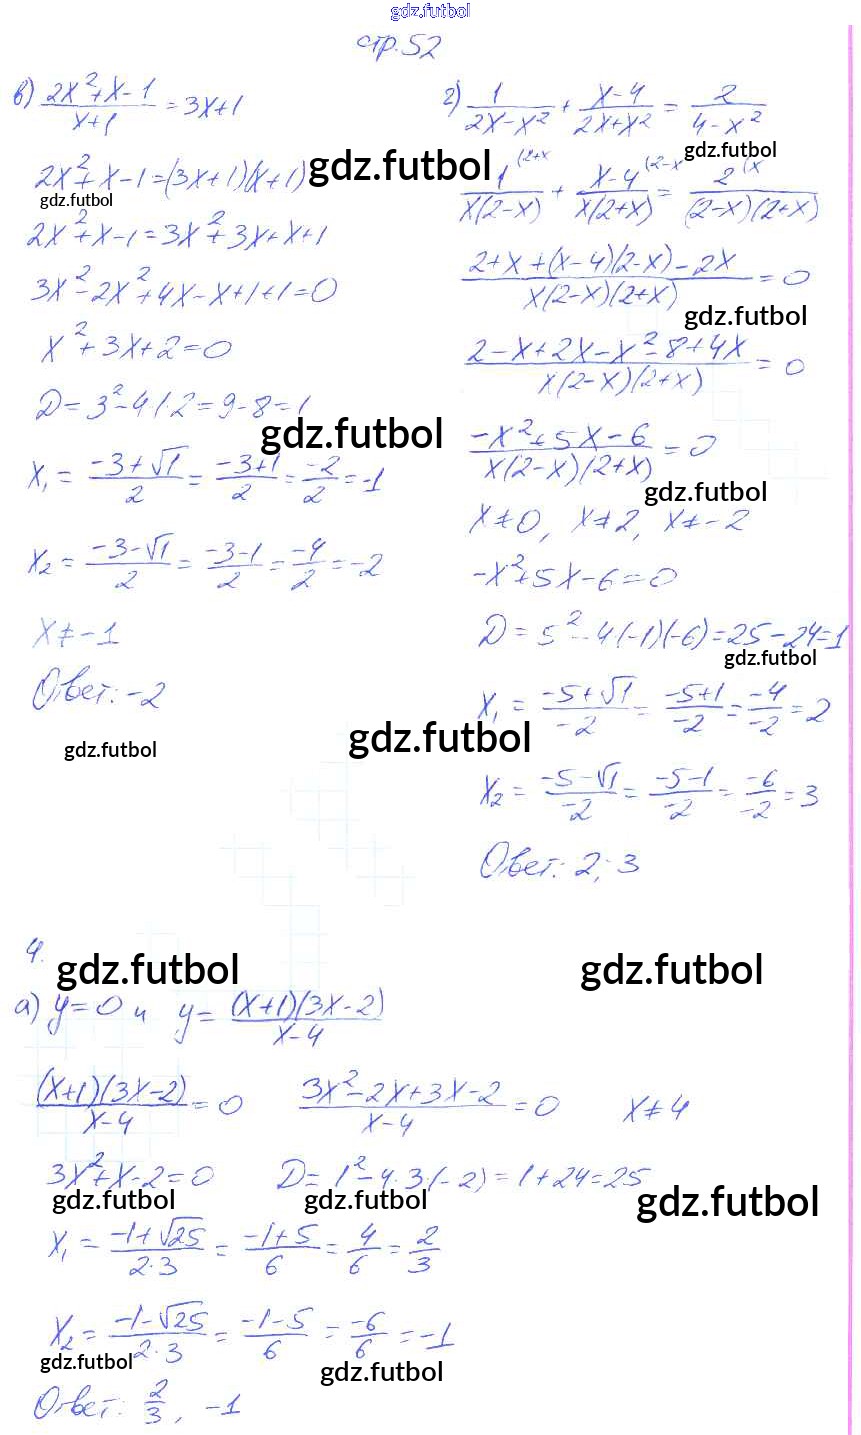 gdz.futbol
стр.52
в) (2x²+x-1)/(x+1) = 3x+1
2x²+x-1=(3x+1)(x+1)
gdz.futbol
gdz.futbol
2x²+x-1=3x²+3x+x+1
3x²-2x²+4x-x+1+1=0
x²+3x+2=0
D=3²-4·2=9-8=1
gdz.futbol
x₁ = (-3+√1)/2 = (-3+1)/2 = -2/2 = -1
x₂ = (-3-√1)/2 = (-3-1)/2 = -4/2 = -2
x≠-1
Ответ: -2
gdz.futbol
gdz.futbol
г) 1/(2x-x²) + (x-4)/(2x+x²) = 2/(4-x²)
gdz.futbol
1/(x(2-x)) (2+x + (x-4)/(x(2+x)) (2-x = 2/((2-x)(2+x)) (x
(2+x+(x-4)(2-x)-2x)/(x(2-x)(2+x)) = 0
gdz.futbol
(2-x+2x-x²-8+4x)/(x(2-x)(2+x)) = 0
(-x²+5x-6)/(x(2-x)(2+x)) = 0
gdz.futbol
x≠0, x≠2, x≠-2
-x²+5x-6=0
D=5²-4(-1)(-6)=25-24=1
gdz.futbol
x₁ = (-5+√1)/-2 = (-5+1)/-2 = -4/-2 = 2
x₂ = (-5-√1)/-2 = (-5-1)/-2 = -6/-2 = 3
Ответ: 2; 3
4.
gdz.futbol
gdz.futbol
а) y=0 и y = (x+1)(3x-2)/(x-4)
(x+1)(3x-2)/(x-4) = 0 (3x²-2x+3x-2)/(x-4) = 0 x≠4
3x²+x-2=0 D=1²-4·3·(-2)=1+24=25
gdz.futbol
gdz.futbol
gdz.futbol
x₁ = (-1+√25)/(2·3) = (-1+5)/6 = 4/6 = 2/3
x₂ = (-1-√25)/(2·3) = (-1-5)/6 = -6/6 = -1
gdz.futbol
gdz.futbol
Ответ: 2/3, -1